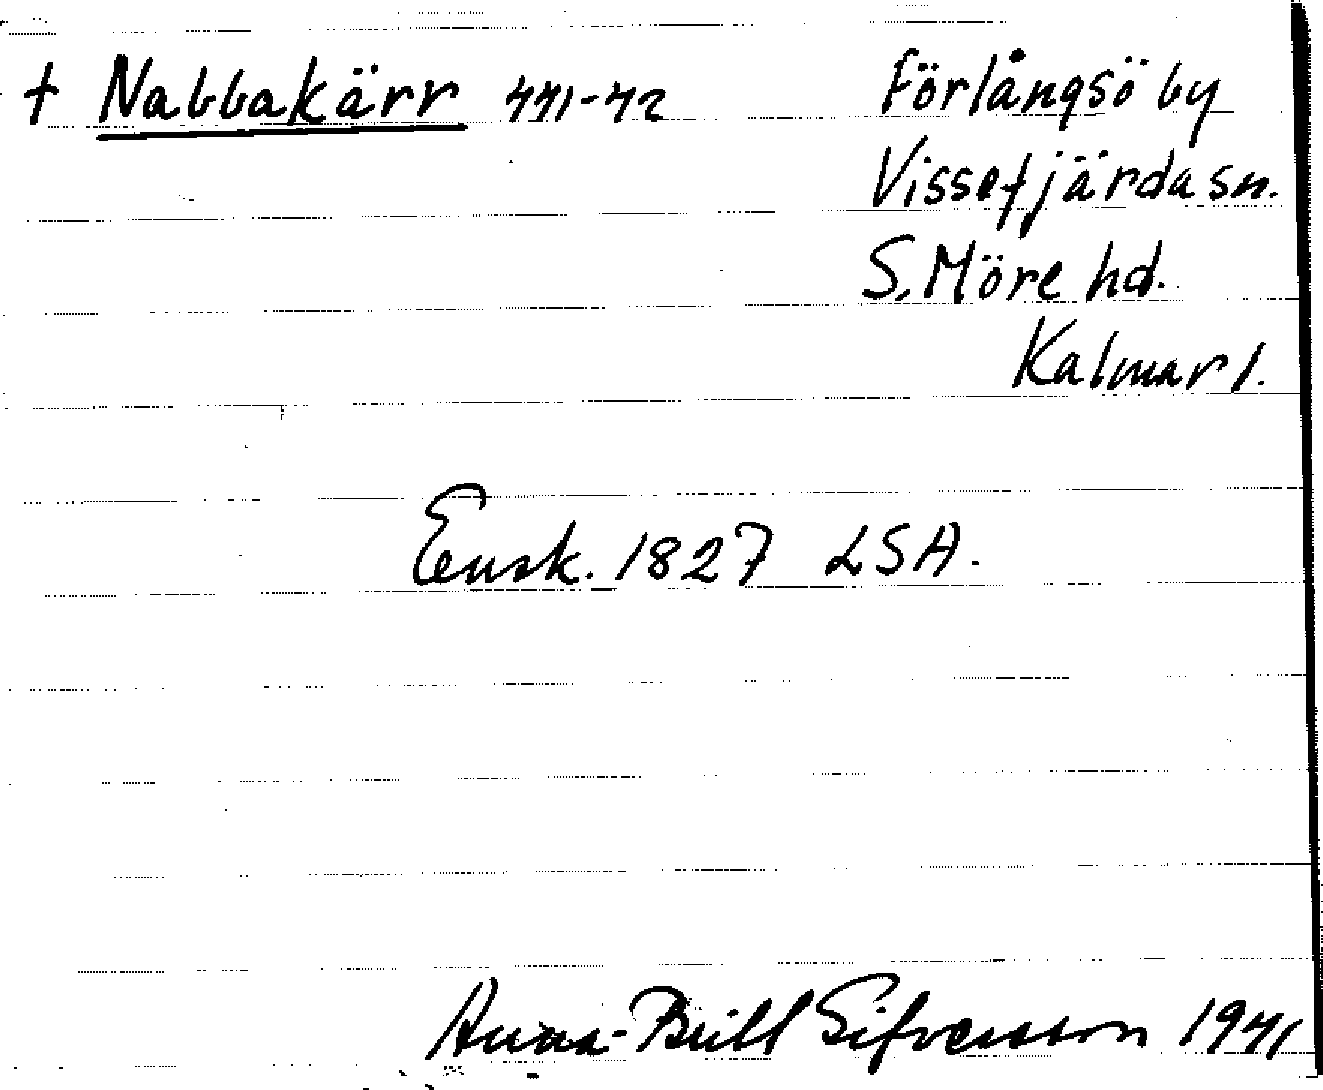 † Nabbakärr 441-42 Förlångsö by
Vissefjärda sn.
S. Möre hd.
Kalmar l.
Ensk. 1827 LSA.
Anna-Britt Sifvensson 1941